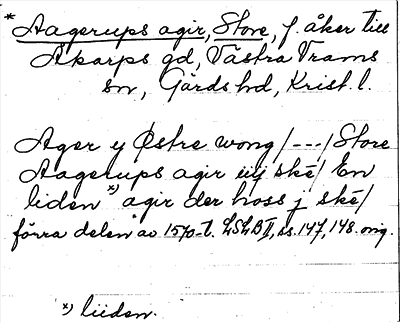 * Aagerups agir, Store, f. åker till
Åkarps gd, Västra Vrams
sn, Gärds hd, Krist. l.
Ager y Østre wong /---/ Store
Aagerups agir iiij skè/ En
liden *) agir der hoss j skè/
förra delen av 1570-t. LSLB II, ss. 147, 148. orig.
*) liiden.